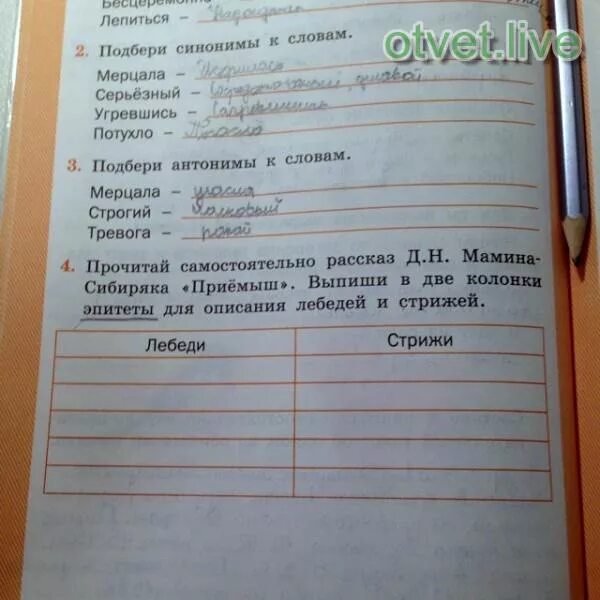 Бесцеремонно
Лепиться –
otvet.live
2. Подбери синонимы к словам.
Мерцала – Искрилась
Серьёзный –
Угревшись –
Потухло –
3. Подбери антонимы к словам.
Мерцала – гасла
Строгий –
Тревога – покой
4. Прочитай самостоятельно рассказ Д.Н. Мамина-
Сибиряка «Приёмыш». Выпиши в две колонки
эпитеты для описания лебедей и стрижей.
Лебеди Стрижи